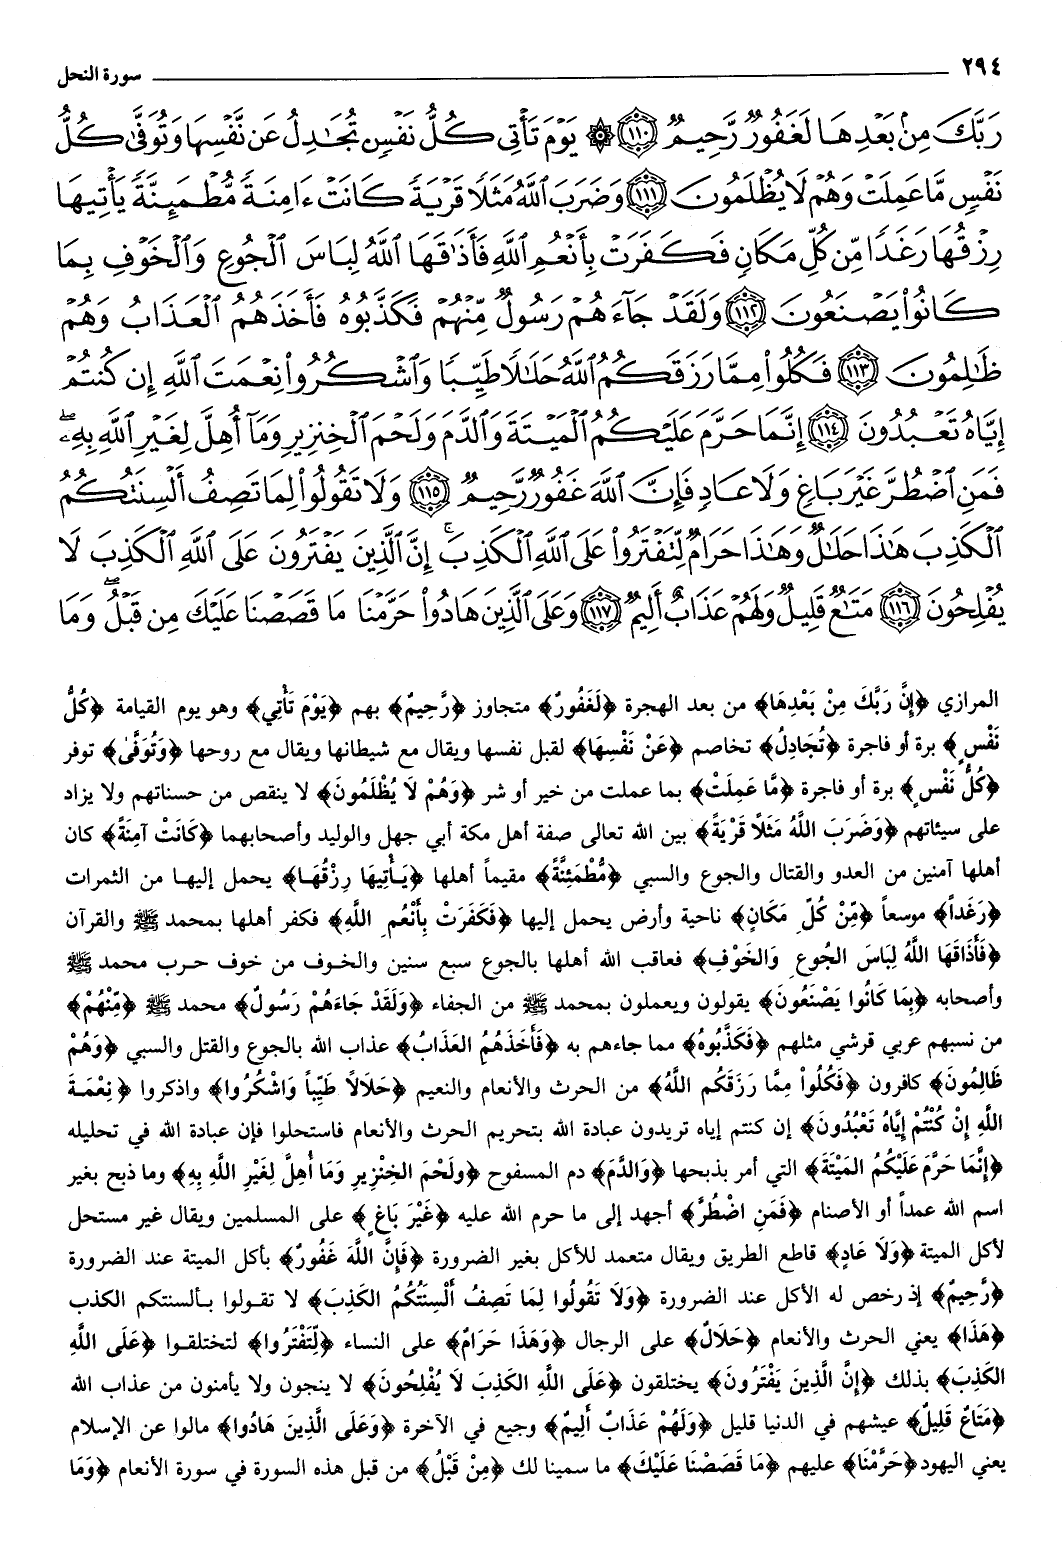 ٢٩٤ سورة النحل
رَبَّكَ مِنۢ بَعْدِهَا لَغَفُورٌ رَّحِيمٌ ﴿١١٠﴾ ۞ يَوْمَ تَأْتِى كُلُّ نَفْسٍ تُجَٰدِلُ عَن نَّفْسِهَا وَتُوَفَّىٰ كُلُّ
نَفْسٍ مَّا عَمِلَتْ وَهُمْ لَا يُظْلَمُونَ ﴿١١١﴾ وَضَرَبَ ٱللَّهُ مَثَلًا قَرْيَةً كَانَتْ ءَامِنَةً مُّطْمَئِنَّةً يَأْتِيهَا
رِزْقُهَا رَغَدًا مِّن كُلِّ مَكَانٍ فَكَفَرَتْ بِأَنْعُمِ ٱللَّهِ فَأَذَٰقَهَا ٱللَّهُ لِبَاسَ ٱلْجُوعِ وَٱلْخَوْفِ بِمَا
كَانُوا۟ يَصْنَعُونَ ﴿١١٢﴾ وَلَقَدْ جَآءَهُمْ رَسُولٌ مِّنْهُمْ فَكَذَّبُوهُ فَأَخَذَهُمُ ٱلْعَذَابُ وَهُمْ
ظَٰلِمُونَ ﴿١١٣﴾ فَكُلُوا۟ مِمَّا رَزَقَكُمُ ٱللَّهُ حَلَٰلًا طَيِّبًا وَٱشْكُرُوا۟ نِعْمَتَ ٱللَّهِ إِن كُنتُمْ
إِيَّاهُ تَعْبُدُونَ ﴿١١٤﴾ إِنَّمَا حَرَّمَ عَلَيْكُمُ ٱلْمَيْتَةَ وَٱلدَّمَ وَلَحْمَ ٱلْخِنزِيرِ وَمَآ أُهِلَّ لِغَيْرِ ٱللَّهِ بِهِۦ ۖ
فَمَنِ ٱضْطُرَّ غَيْرَ بَاغٍ وَلَا عَادٍ فَإِنَّ ٱللَّهَ غَفُورٌ رَّحِيمٌ ﴿١١٥﴾ وَلَا تَقُولُوا۟ لِمَا تَصِفُ أَلْسِنَتُكُمُ
ٱلْكَذِبَ هَٰذَا حَلَٰلٌ وَهَٰذَا حَرَامٌ لِّتَفْتَرُوا۟ عَلَى ٱللَّهِ ٱلْكَذِبَ ۚ إِنَّ ٱلَّذِينَ يَفْتَرُونَ عَلَى ٱللَّهِ ٱلْكَذِبَ لَا
يُفْلِحُونَ ﴿١١٦﴾ مَتَٰعٌ قَلِيلٌ وَلَهُمْ عَذَابٌ أَلِيمٌ ﴿١١٧﴾ وَعَلَى ٱلَّذِينَ هَادُوا۟ حَرَّمْنَا مَا قَصَصْنَا عَلَيْكَ مِن قَبْلُ ۖ وَمَا
المرازي ﴿إِنَّ رَبَّكَ مِنْ بَعْدِهَا﴾ من بعد الهجرة ﴿لَغَفُورٌ﴾ متجاوز ﴿رَّحِيمٌ﴾ بهم ﴿يَوْمَ تَأْتِي﴾ وهو يوم القيامة ﴿كُلُّ
نَفْسٍ﴾ برة أو فاجرة ﴿تُجَادِلُ﴾ تخاصم ﴿عَنْ نَفْسِهَا﴾ لقبل نفسها ويقال مع شيطانها ويقال مع روحها ﴿وَتُوَفَّىٰ﴾ توفر
﴿كُلُّ نَفْسٍ﴾ برة أو فاجرة ﴿مَّا عَمِلَتْ﴾ بما عملت من خير أو شر ﴿وَهُمْ لَا يُظْلَمُونَ﴾ لا ينقص من حسناتهم ولا يزاد
على سيئاتهم ﴿وَضَرَبَ اللَّهُ مَثَلًا قَرْيَةً﴾ بين الله تعالى صفة أهل مكة أبي جهل والوليد وأصحابهما ﴿كَانَتْ آمِنَةً﴾ كان
أهلها آمنين من العدو والقتال والجوع والسبي ﴿مُّطْمَئِنَّةً﴾ مقيماً أهلها ﴿يَأْتِيهَا رِزْقُهَا﴾ يحمل إليها من الثمرات
﴿رَغَداً﴾ موسعاً ﴿مِّنْ كُلِّ مَكَانٍ﴾ ناحية وأرض يحمل إليها ﴿فَكَفَرَتْ بِأَنْعُمِ اللَّهِ﴾ فكفر أهلها بمحمد ﷺ والقرآن
﴿فَأَذَاقَهَا اللَّهُ لِبَاسَ الجُوعِ وَالخَوْفِ﴾ فعاقب الله أهلها بالجوع سبع سنين والخوف من خوف حرب محمد ﷺ
وأصحابه ﴿بِمَا كَانُوا يَصْنَعُونَ﴾ يقولون ويعملون بمحمد ﷺ من الجفاء ﴿وَلَقَدْ جَاءَهُمْ رَسُولٌ﴾ محمد ﷺ ﴿مِّنْهُمْ﴾
من نسبهم عربي قرشي مثلهم ﴿فَكَذَّبُوهُ﴾ مما جاءهم به ﴿فَأَخَذَهُمُ العَذَابُ﴾ عذاب الله بالجوع والقتل والسبي ﴿وَهُمْ
ظَالِمُونَ﴾ كافرون ﴿فَكُلُوا مِمَّا رَزَقَكُم اللَّهُ﴾ من الحرث والأنعام والنعيم ﴿حَلَالاً طَيِّباً وَاشْكُرُوا﴾ واذكروا ﴿نِعْمَةَ
اللَّهِ إِنْ كُنْتُمْ إِيَّاهُ تَعْبُدُونَ﴾ إن كنتم إياه تريدون عبادة الله بتحريم الحرث والأنعام فاستحلوا فإن عبادة الله في تحليله
﴿إِنَّمَا حَرَّمَ عَلَيْكُمُ المَيْتَةَ﴾ التي أمر بذبحها ﴿وَالدَّمَ﴾ دم المسفوح ﴿وَلَحْمَ الخِنْزِيرِ وَمَا أُهِلَّ لِغَيْرِ اللَّهِ بِهِ﴾ وما ذبح بغير
اسم الله عمداً أو الأصنام ﴿فَمَنِ اضْطُرَّ﴾ أجهد إلى ما حرم الله عليه ﴿غَيْرَ بَاغٍ﴾ على المسلمين ويقال غير مستحل
لأكل الميتة ﴿وَلَا عَادٍ﴾ قاطع الطريق ويقال متعمد للأكل بغير الضرورة ﴿فَإِنَّ اللَّهَ غَفُورٌ﴾ بأكل الميتة عند الضرورة
﴿رَّحِيمٌ﴾ إذ رخص له الأكل عند الضرورة ﴿وَلَا تَقُولُوا لِمَا تَصِفُ أَلْسِنَتُكُمُ الكَذِبَ﴾ لا تقولوا بألسنتكم الكذب
﴿هَذَا﴾ يعني الحرث والأنعام ﴿حَلَالٌ﴾ على الرجال ﴿وَهَذَا حَرَامٌ﴾ على النساء ﴿لِّتَفْتَرُوا﴾ لتختلقوا ﴿عَلَى اللَّهِ
الكَذِبَ﴾ بذلك ﴿إِنَّ الَّذِينَ يَفْتَرُونَ﴾ يختلقون ﴿عَلَى اللَّهِ الكَذِبَ لَا يُفْلِحُونَ﴾ لا ينجون ولا يأمنون من عذاب الله
﴿مَتَاعٌ قَلِيلٌ﴾ عيشهم في الدنيا قليل ﴿وَلَهُمْ عَذَابٌ أَلِيمٌ﴾ وجيع في الآخرة ﴿وَعَلَى الَّذِينَ هَادُوا﴾ مالوا عن الإسلام
يعني اليهود ﴿حَرَّمْنَا﴾ عليهم ﴿مَا قَصَصْنَا عَلَيْكَ﴾ ما سمينا لك ﴿مِنْ قَبْلُ﴾ من قبل هذه السورة في سورة الأنعام ﴿وَمَا